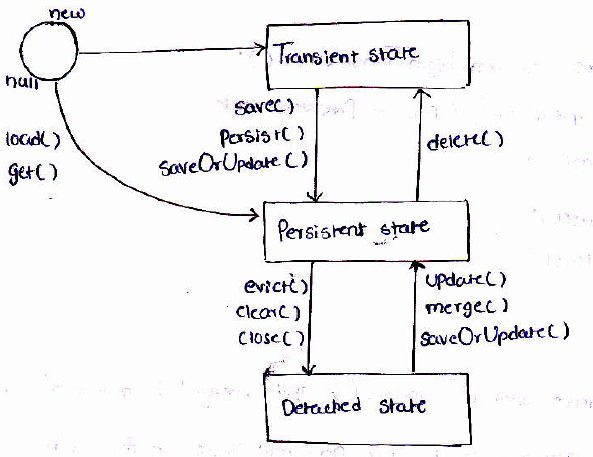 new
Transient state
null
save()
Persist()
saveOrUpdate()
delete()
load()
get()
Persistent state
evict()
clear()
close()
update()
merge()
saveOrUpdate()
Detached state